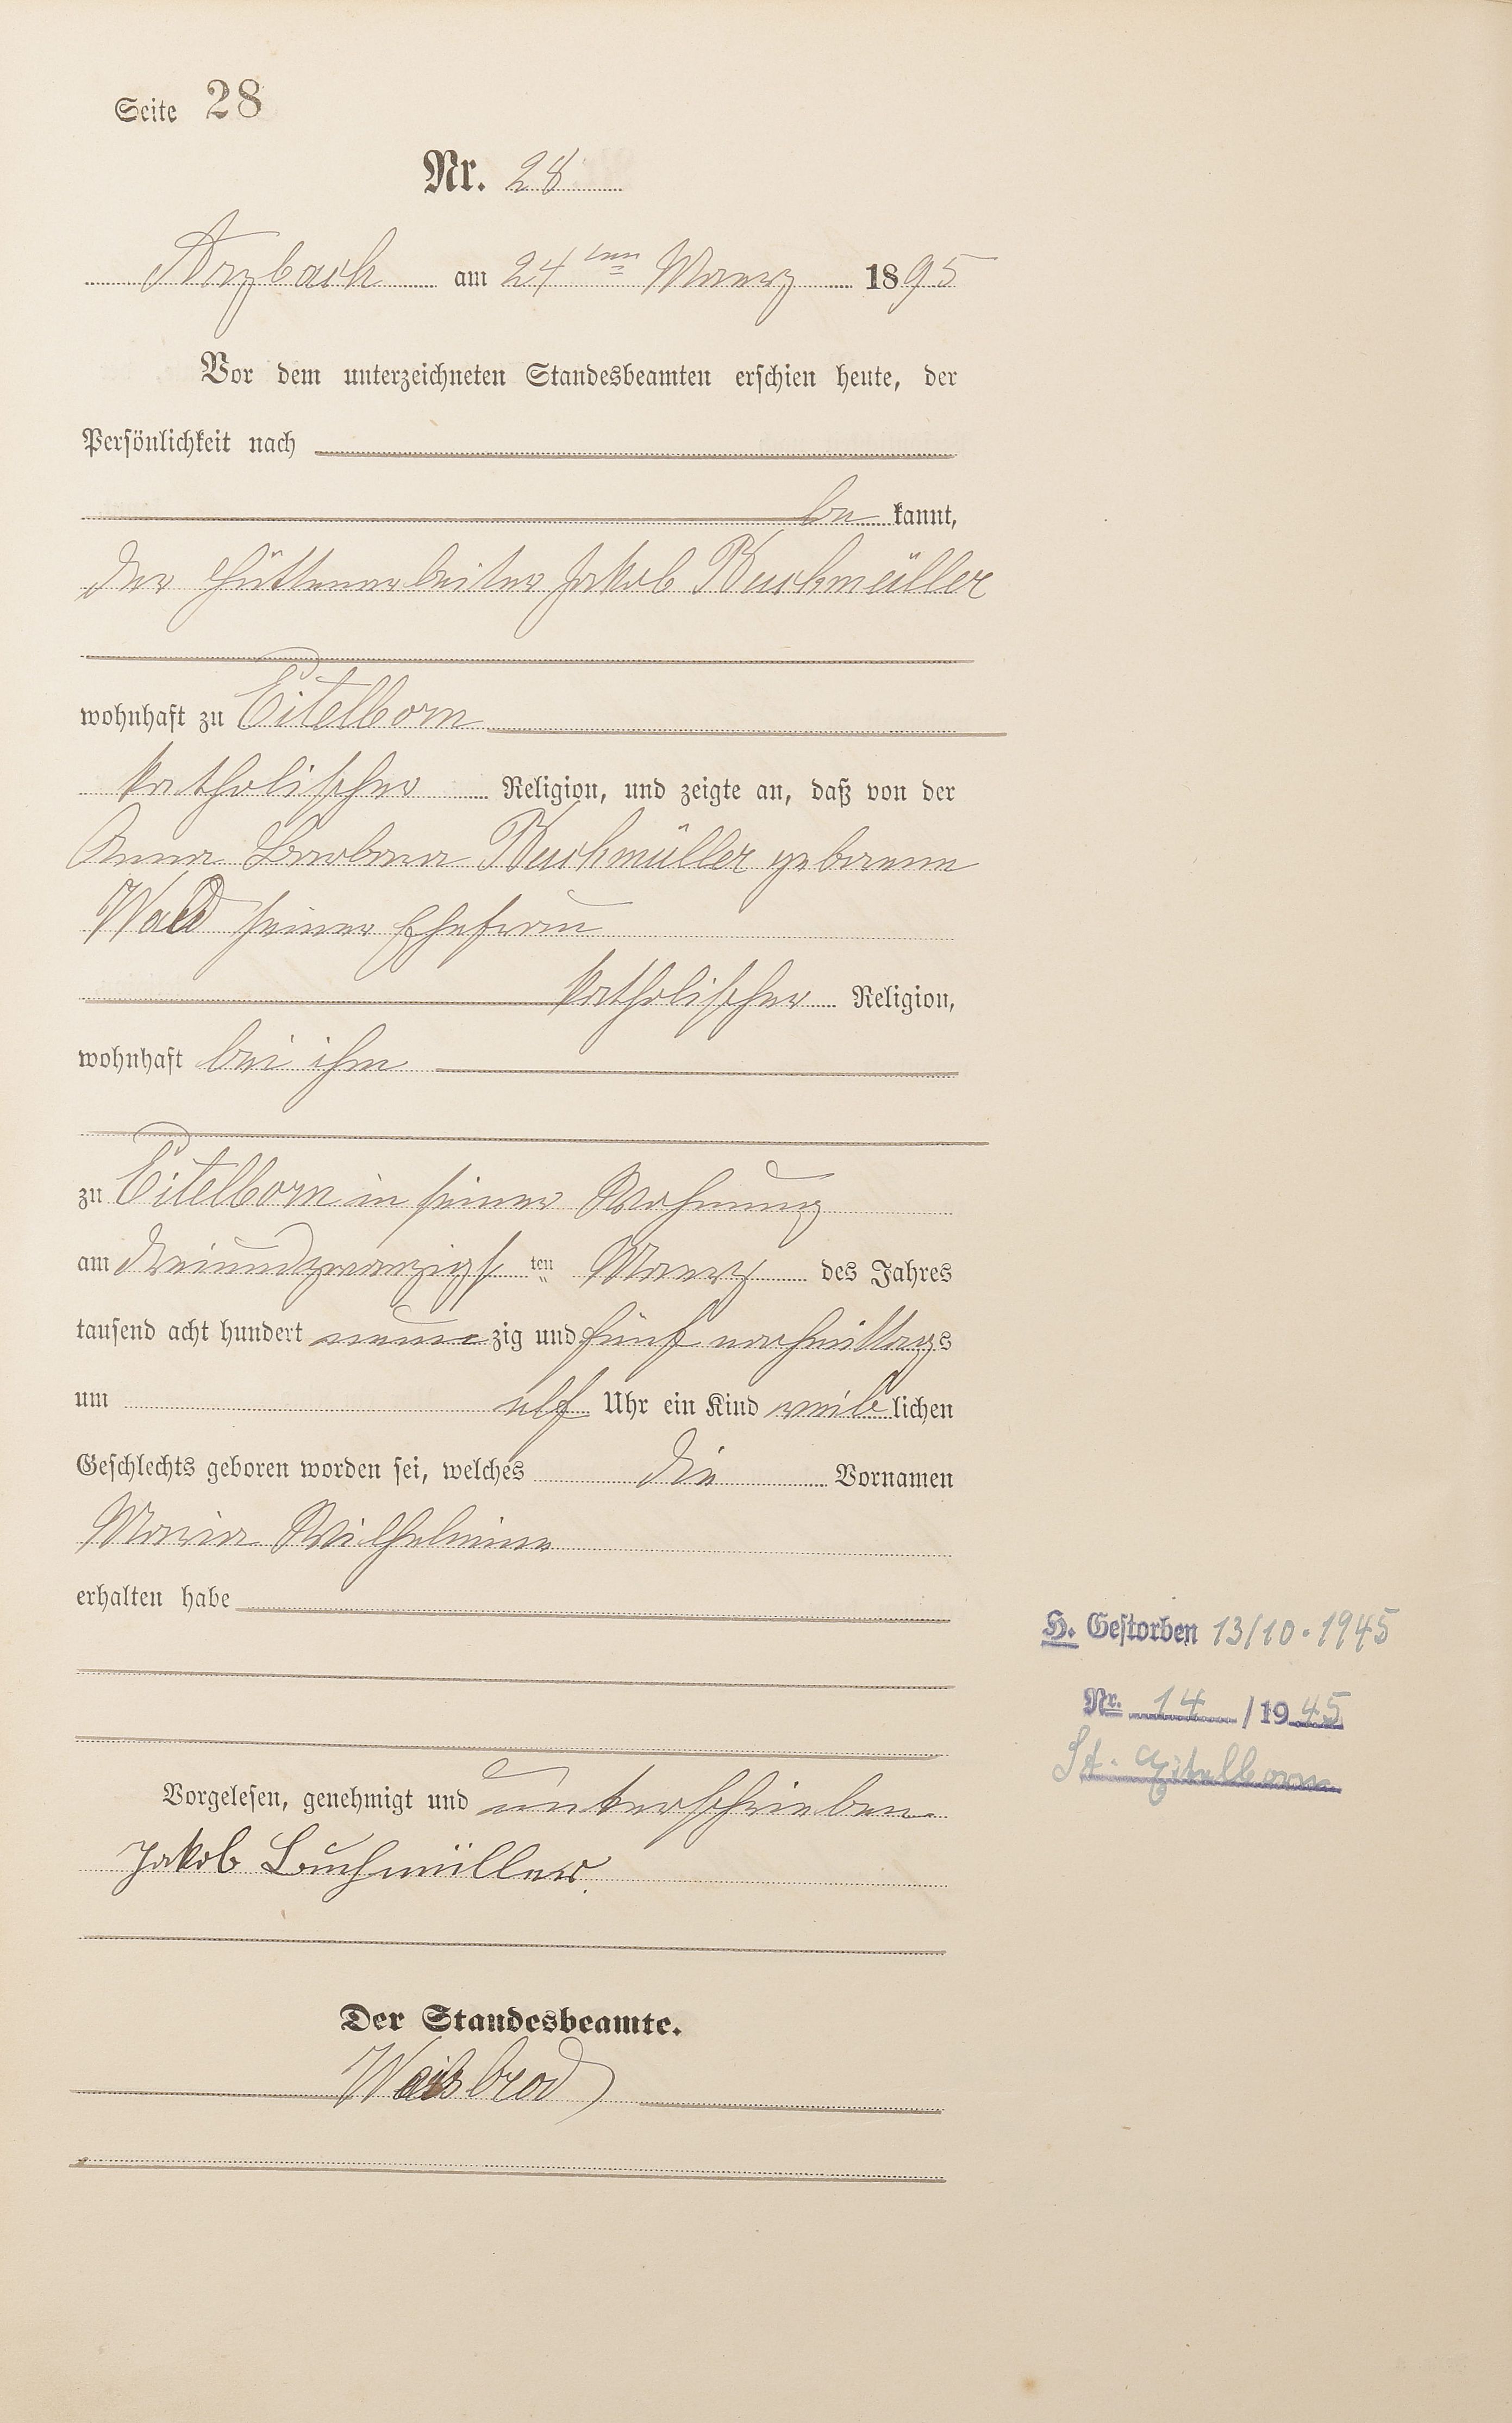 Seite 28
Nr. 28
Arzbach am 24 ten Maerz 1895
Vor dem unterzeichneten Standesbeamten erschien heute, der
Persönlichkeit nach
be kannt,
der Hüttenarbeiter Jakob Buchmüller
wohnhaft zu Eitelborn
katholischer Religion, und zeigte an, daß von der
Anna Barbara Buchmüller geborene
Wald seiner Ehefrau
katholischer Religion,
wohnhaft bei ihm
zu Eitelborn in seiner Wohnung
am dreiundzwanzigs ten Maerz des Jahres
tausend acht hundert neun zig und fünf nachmittags
um elf Uhr ein Kind weib lichen
Geschlechts geboren worden sei, welches die Vornamen
Maria Wilhelmine
erhalten habe
H. Gestorben 13/10.1945
Nr. 14 / 19 45
St. Eitelborn
Vorgelesen, genehmigt und unterschrieben
Jakob Buchmüller.
Der Standesbeamte.
Weisbrod